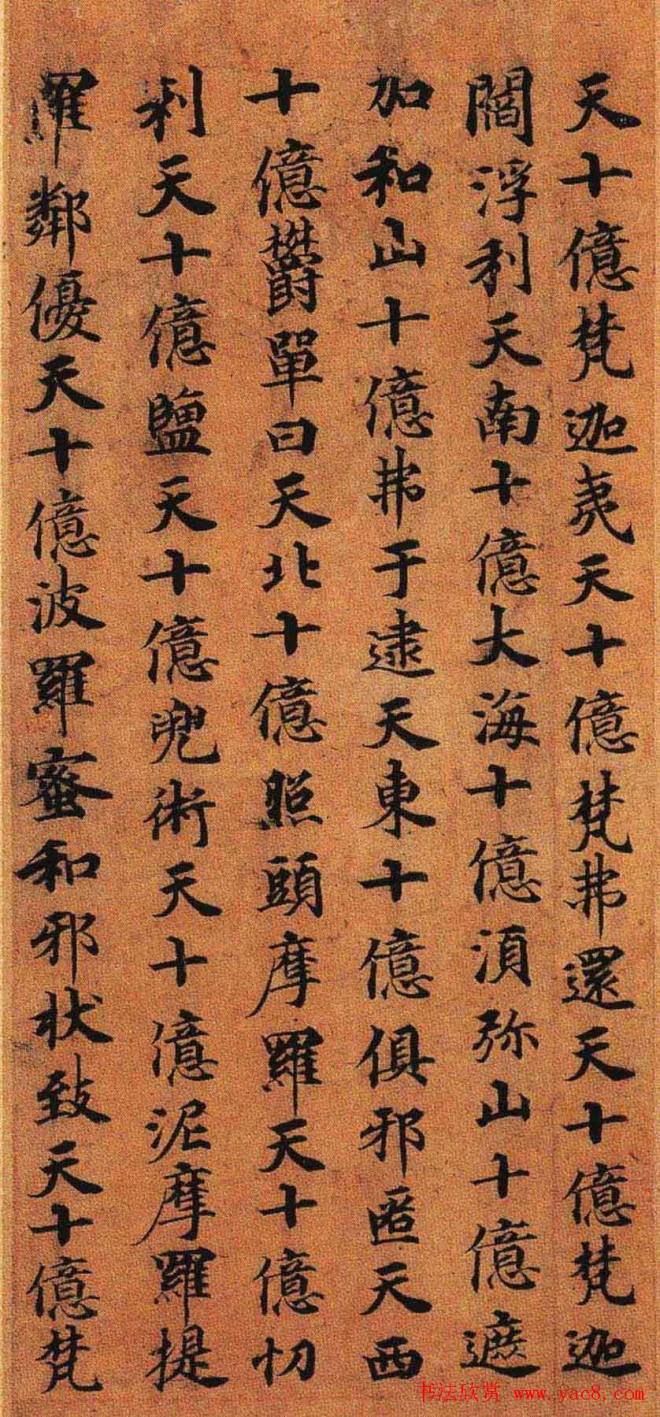 天十億梵迦夷天十億梵弗還天十億梵迦
閻浮利天南十億大海十億須弥山十億遮
加和山十億弗于逮天東十億俱邪匿天西
十億欝單曰天北十億照頭摩羅天十億忉
利天十億鹽天十億兜術天十億泥摩羅提
羅鄰優天十億波羅蜜和邪状致天十億梵
书法欣赏 www.yac8.com